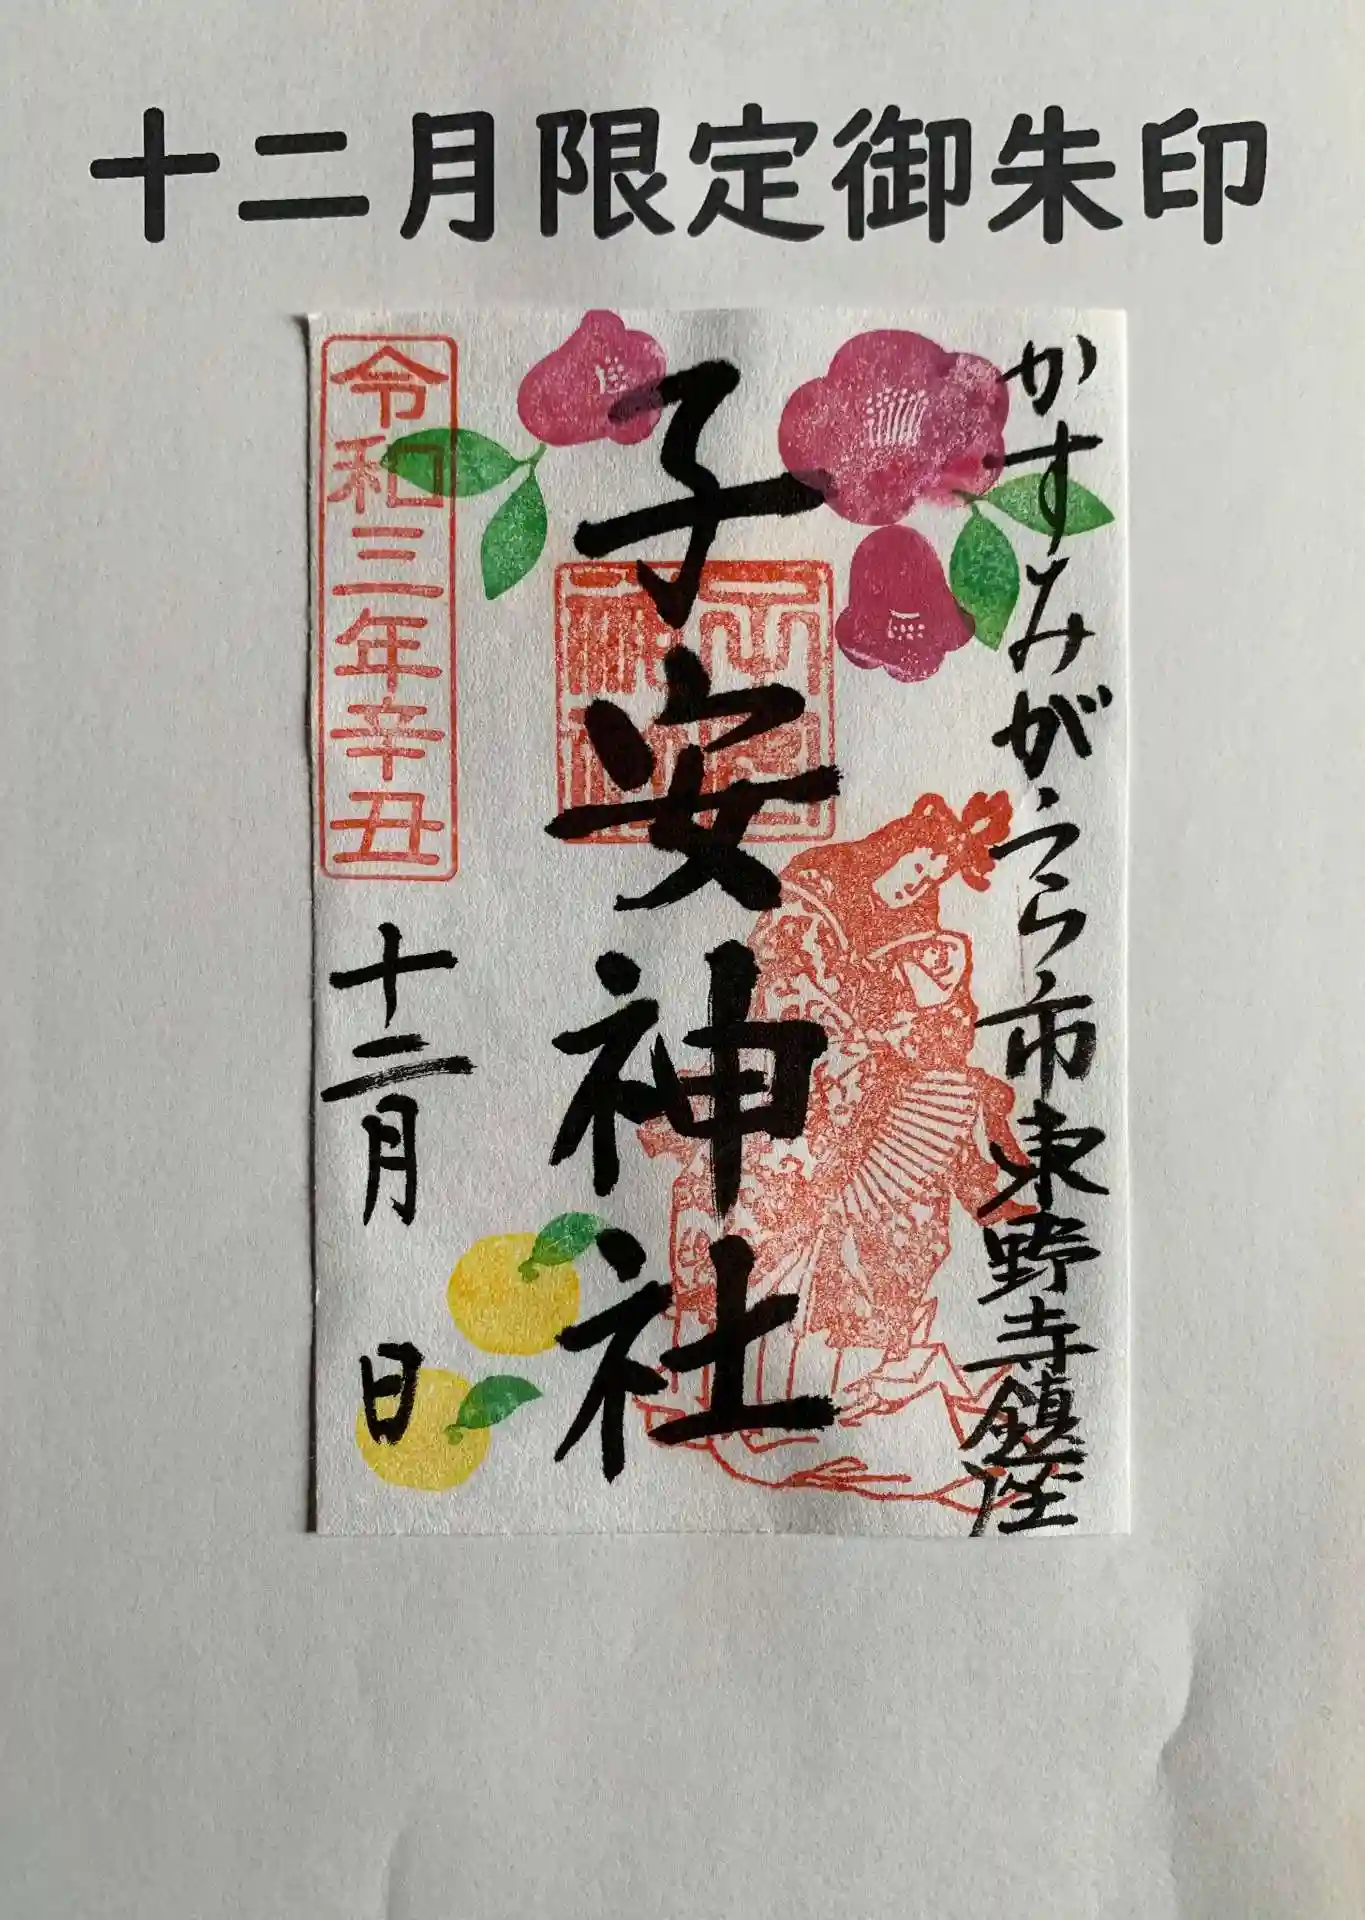 十二月限定御朱印
かすみがうら市東野寺鎮座
子安神社
令和三年辛丑
十二月 日